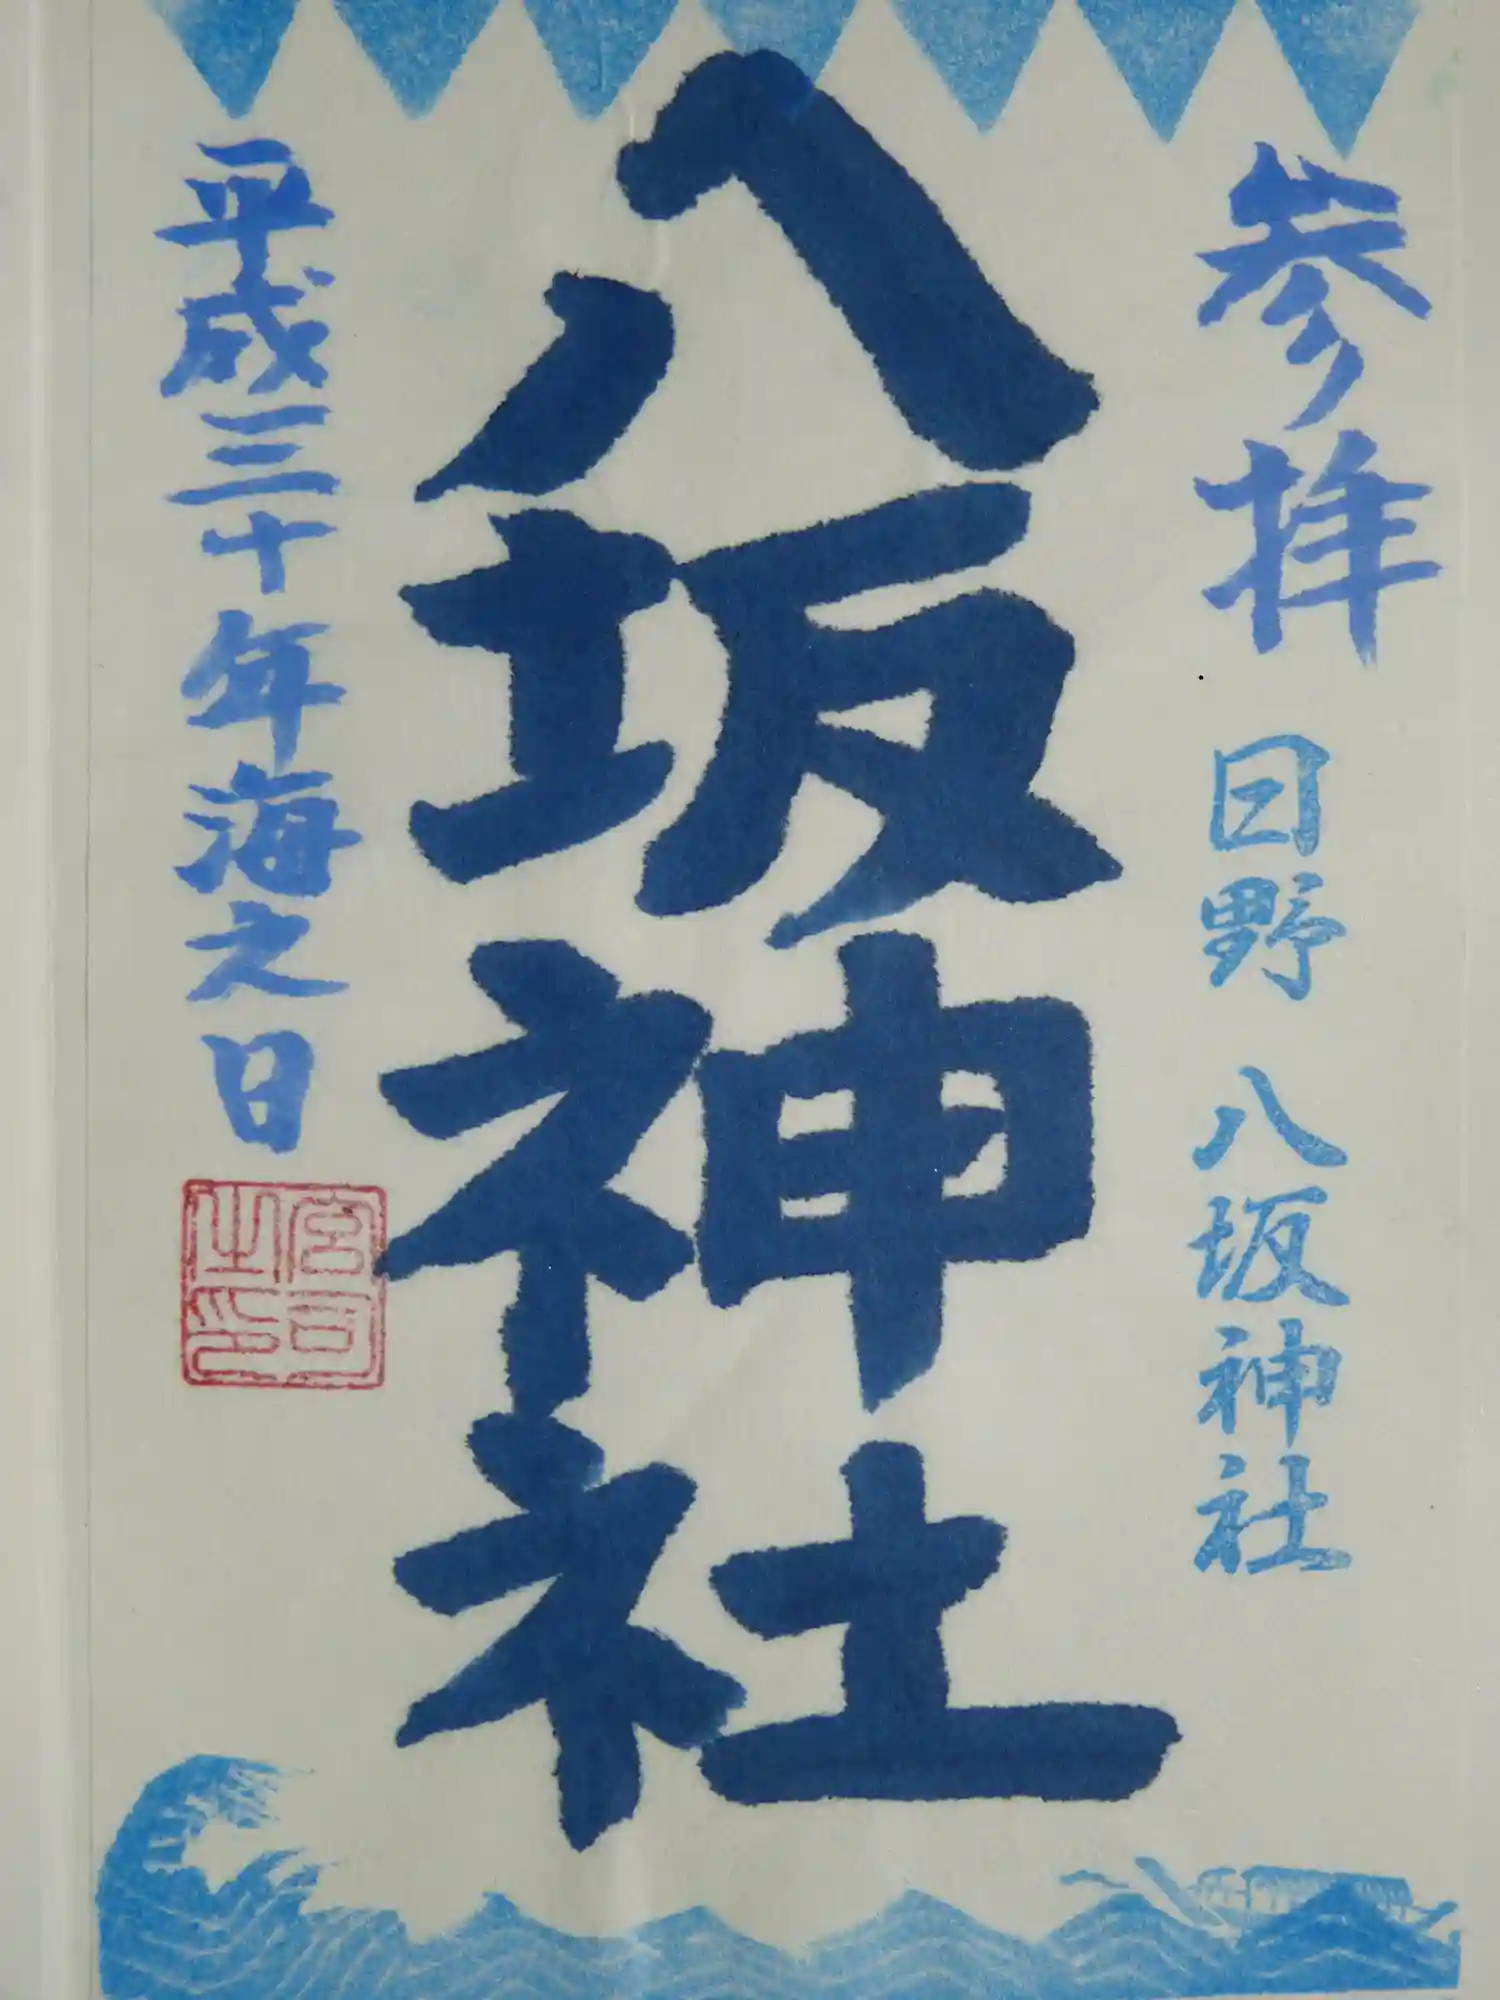 参拝
日野 八坂神社
八坂神社
平成三十年海之日
宮司
之印